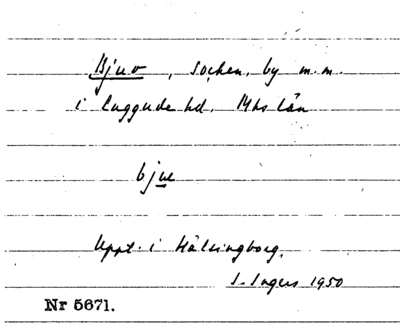 Bjuv, socken, by m.m.
i Luggude hd. Mhs län
bjue
Uppt. i Hälsingborg.
I. Ingers 1950
Nr 5671.